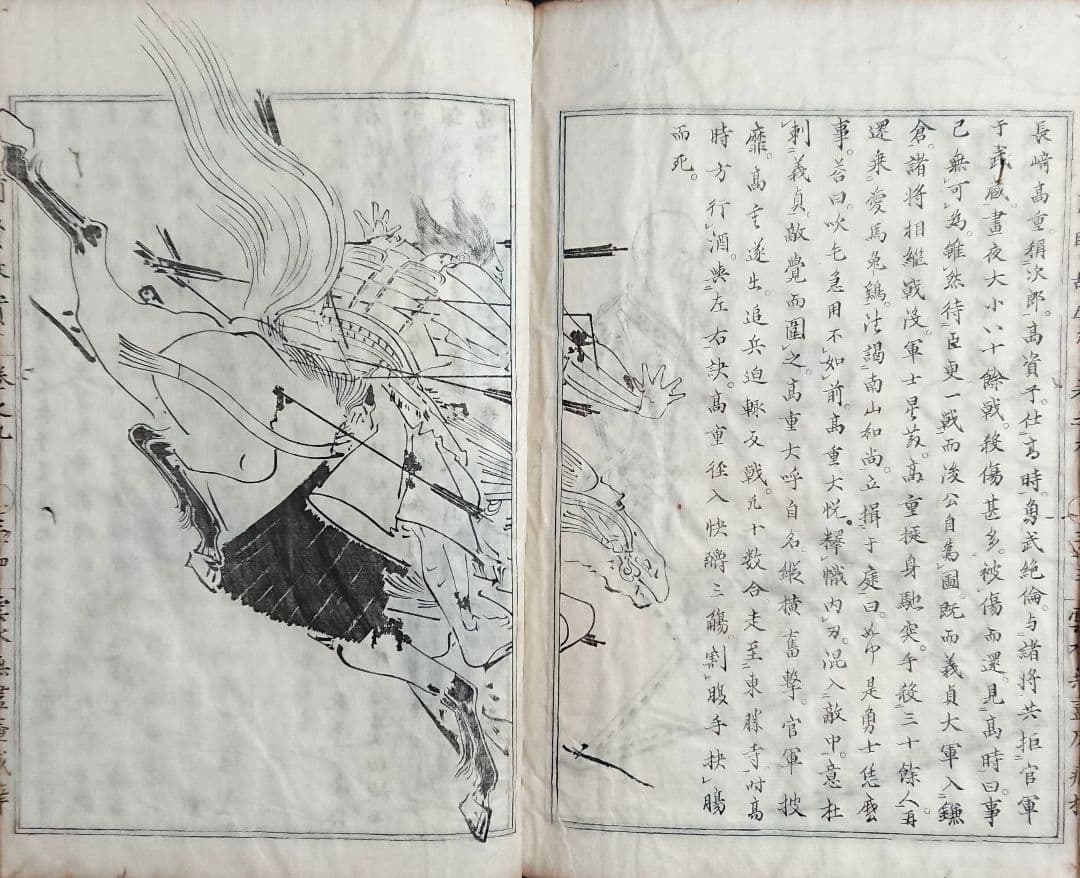 長﨑高重。稱次郎。高資子。仕高時。勇武絶倫。与諸将共拒官軍
于武藏。晝夜大小八十餘戦。殺傷甚多。被傷而還。見高時曰事
已無可為。雖然待臣更一戦而後公自為圖。既而義貞大軍入鎌
倉。諸将相継戦没。軍士星散。高重挺身馳突。手殺三十餘人。再
還乗愛馬兎鷄。法謁南山和尚。立揖于庭曰。如何是勇士恁麼
事。荅曰。吹毛急用不如前。高重大悦。釋幟内刃。混入敵中。意在
刺義貞。敵覺而圍之。高重大呼自名。縦横奮撃。官軍披
靡。高重遂出。追兵迫輙反戦。凡十数合走至東勝寺。時高
時方行酒。與左右訣。高重徑入快釂三觴。割腹手抉腸
而死。